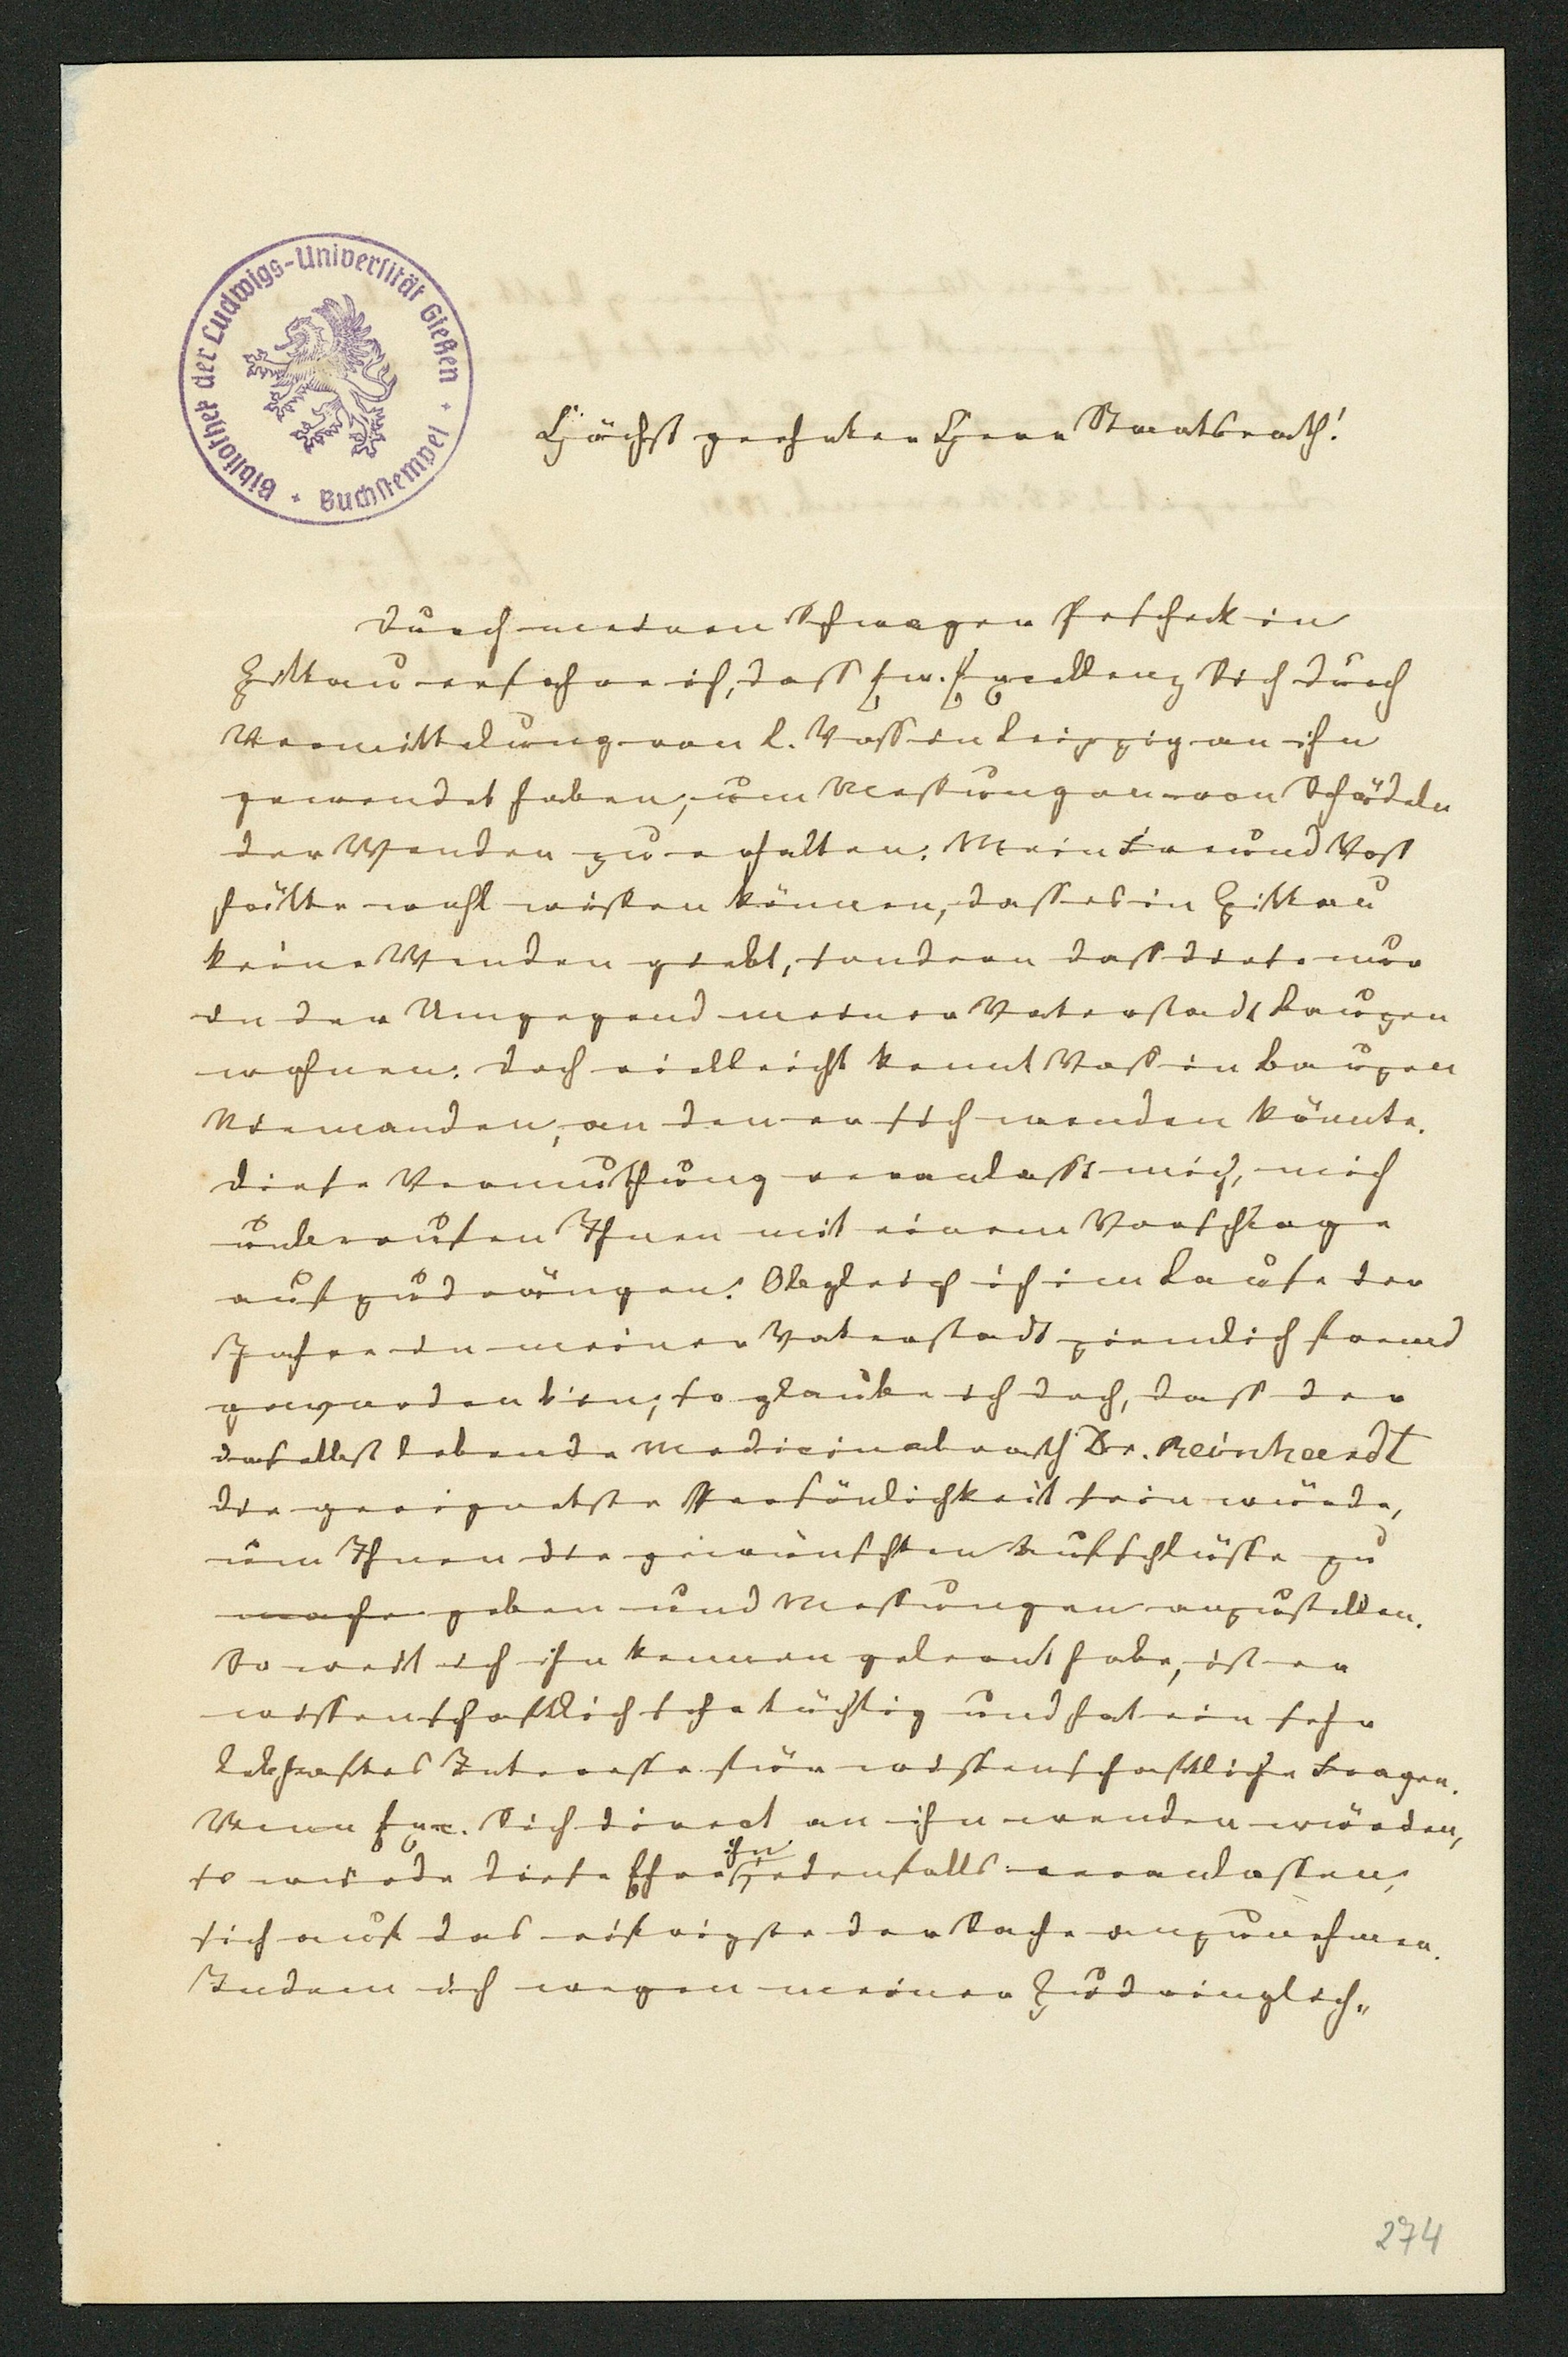 Bibliothek der Ludwigs-Universität Gießen + Buchstempel +
Höchst geehrter Herr Staatsrath!
Durch meinen Schwager Pescheck in
Zittau erfahre ich, dass Ew. Excellenz Sich durch
Vermittelung von L. Voss in Leipzig an ihn
gewendet haben, um Messungen von Schädeln
der Wenden zu erhalten. Mein Freund Voss
hätte wohl wissen können, dass es in Zittau
keine Wenden giebt, sondern dass diese nur
in der Umgegend meiner Vaterstadt Bauzen
wohnen. Doch vielleicht kennt Voss in Bauzen
Niemanden, an den er sich wenden könnte.
Diese Vermuthung veranlasst mich, mich
unberufen Ihnen mit einem Vorschlage
aufzudrängen. Obgleich ich im Laufe der
Jahre in meiner Vaterstadt ziemlich fremd
geworden bin, so glaube ich doch, dass der
daselbst lebende Medicinalrath Dr. Reinhardt
die geeignetste Persönlichkeit sein würde,
um Ihnen die gewünschten Aufschlüsse zu
mache geben und Messungen anzustellen.
So weit ich ihn kennen gelernt habe, ist er
wissenschaftlich sehr tüchtig und hat ein sehr
lebhaftes Interesse für wissenschaftliche Fragen.
Wenn Exc. Sich direct an ihn wenden würden,
so würde diese Ehre ihn jedenfalls veranlassen,
sich auf das eifrigste der Sache anzunehmen.
Indem ich wegen meiner Zudringlich-
274